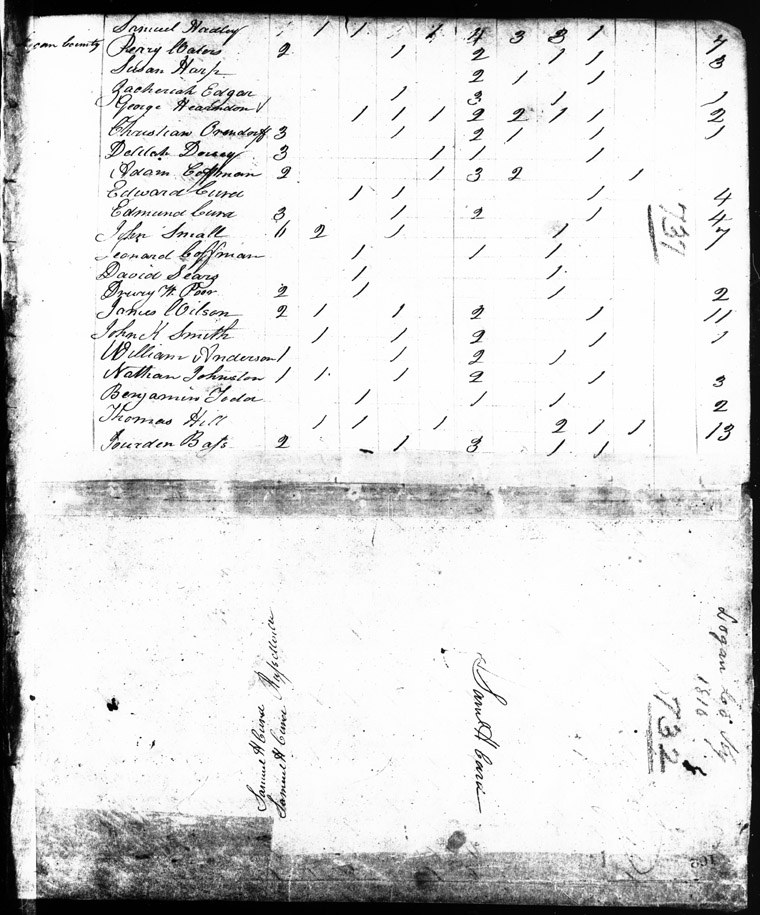 Samuel Hadley 1 1 1 1 4 3 3 1 4
Logan County Perry Waters 2 1 2 1 1 3
Susan Harp 2 1 1
Zacheriah Edgar 1 3 1 1
George Headindon 1 1 1 2 2 1 1 2
Christian Orendorff 3 1 2 1 1 1
Delilah Dorsey 3 1 1 1
Adam Coffman 2 1 3 2 1
Edward Curd 1 1 1 4
Edmund Curd 3 1 2 1 4
John Small 2 1 1 7
Leonard Coffman 1 1 1
David Sears 1 1
Drury W. Poor 2 1 1 2
James Wilson 2 1 1 2 1 11
John K Smith 1 1 2 1 1
William Anderson 1 1 2 1
Nathan Johnston 1 1 1 2 1 3
Benjamin Todd 1 1 1 2
Thomas Hill 1 1 1 2 1 1 13
Jourden Bass 2 1 3 1 1
731
Samuel H Curd
Samuel H Curd Russellville
Saml H Curd
732
Logan Co Ky
1810